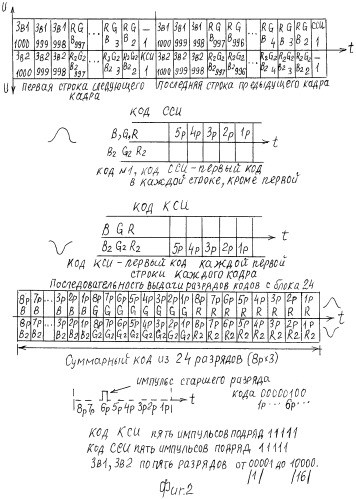 U
Зв1 Зв1 Зв1 RG ... RG RG — Зв1 Зв1 Зв1 RG RG ... RG RG RG ССИ
1000 999 998 B997 B3 B2 1 1000 999 998 B997 B996 B4 B3 B2 1
t
Зв2 Зв2 Зв2 R2G2 ... R2G2 R2G2 КСИ Зв2 Зв2 Зв2 R2G2 R2G2 ... R2G2 R2G2 R2G2 —
1000 999 998 B2 997 B2 3 B2 2 1 1000 999 998 B2 997 B2 996 B2 4 B2 3 B2 2 1
U
первая строка следующего кадра
Последняя строка предыдущего кадра
код ССИ
B,G,R 5р 4р 3р 2р 1р t
B2 G2 R2
код №1, код ССИ-первый код
в каждой строке, кроме первой
код КСИ
B G R t
B2 G2 R2 5р 4р 3р 2р 1р
Код КСИ - первый код каждой первой
строки каждого кадра
Последовательность выдачи разрядов кодов с блока 24
8р 7р ... 3р 2р 1р 8р 7р 6р 5р 4р 3р 2р 1р 8р 7р 6р 5р 4р 3р 2р 1р
B B B B B G G G G G G G G R R R R R R R R t
8р 7р ... 3р 2р 1р 8р 7р 6р 5р 4р 3р 2р 1р 8р 7р 6р 5р 4р 3р 2р 1р
B2 B2 B2 B2 B2 G2 G2 G2 G2 G2 G2 G2 G2 R2 R2 R2 R2 R2 R2 R2 R2
Суммарный код из 24 разрядов (8р×3)
импульс старшего разряда
кода 00000100
8р 7р 6р 5р 4р 3р 2р 1р 1р ... 6р ...
код КСИ пять импульсов подряд 11111
код ССИ пять импульсов подряд 11111
Зв1, Зв2 по пять разрядов от 00001 до 10000.
/1/ /16/
Фиг.2